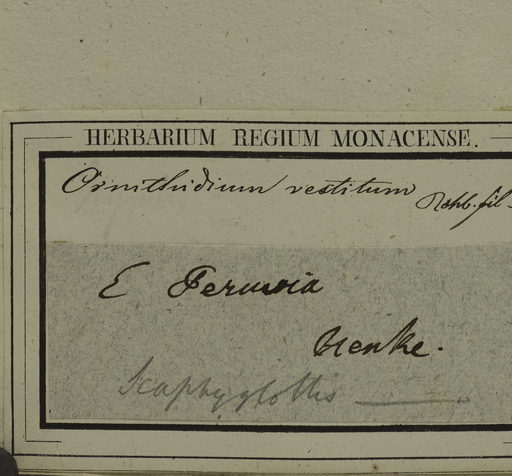 HERBARIUM REGIUM MONACENSE.
Ornithidium vestitum Rchb. fil.
E Peruvia
Henke.
Scaphyglottis